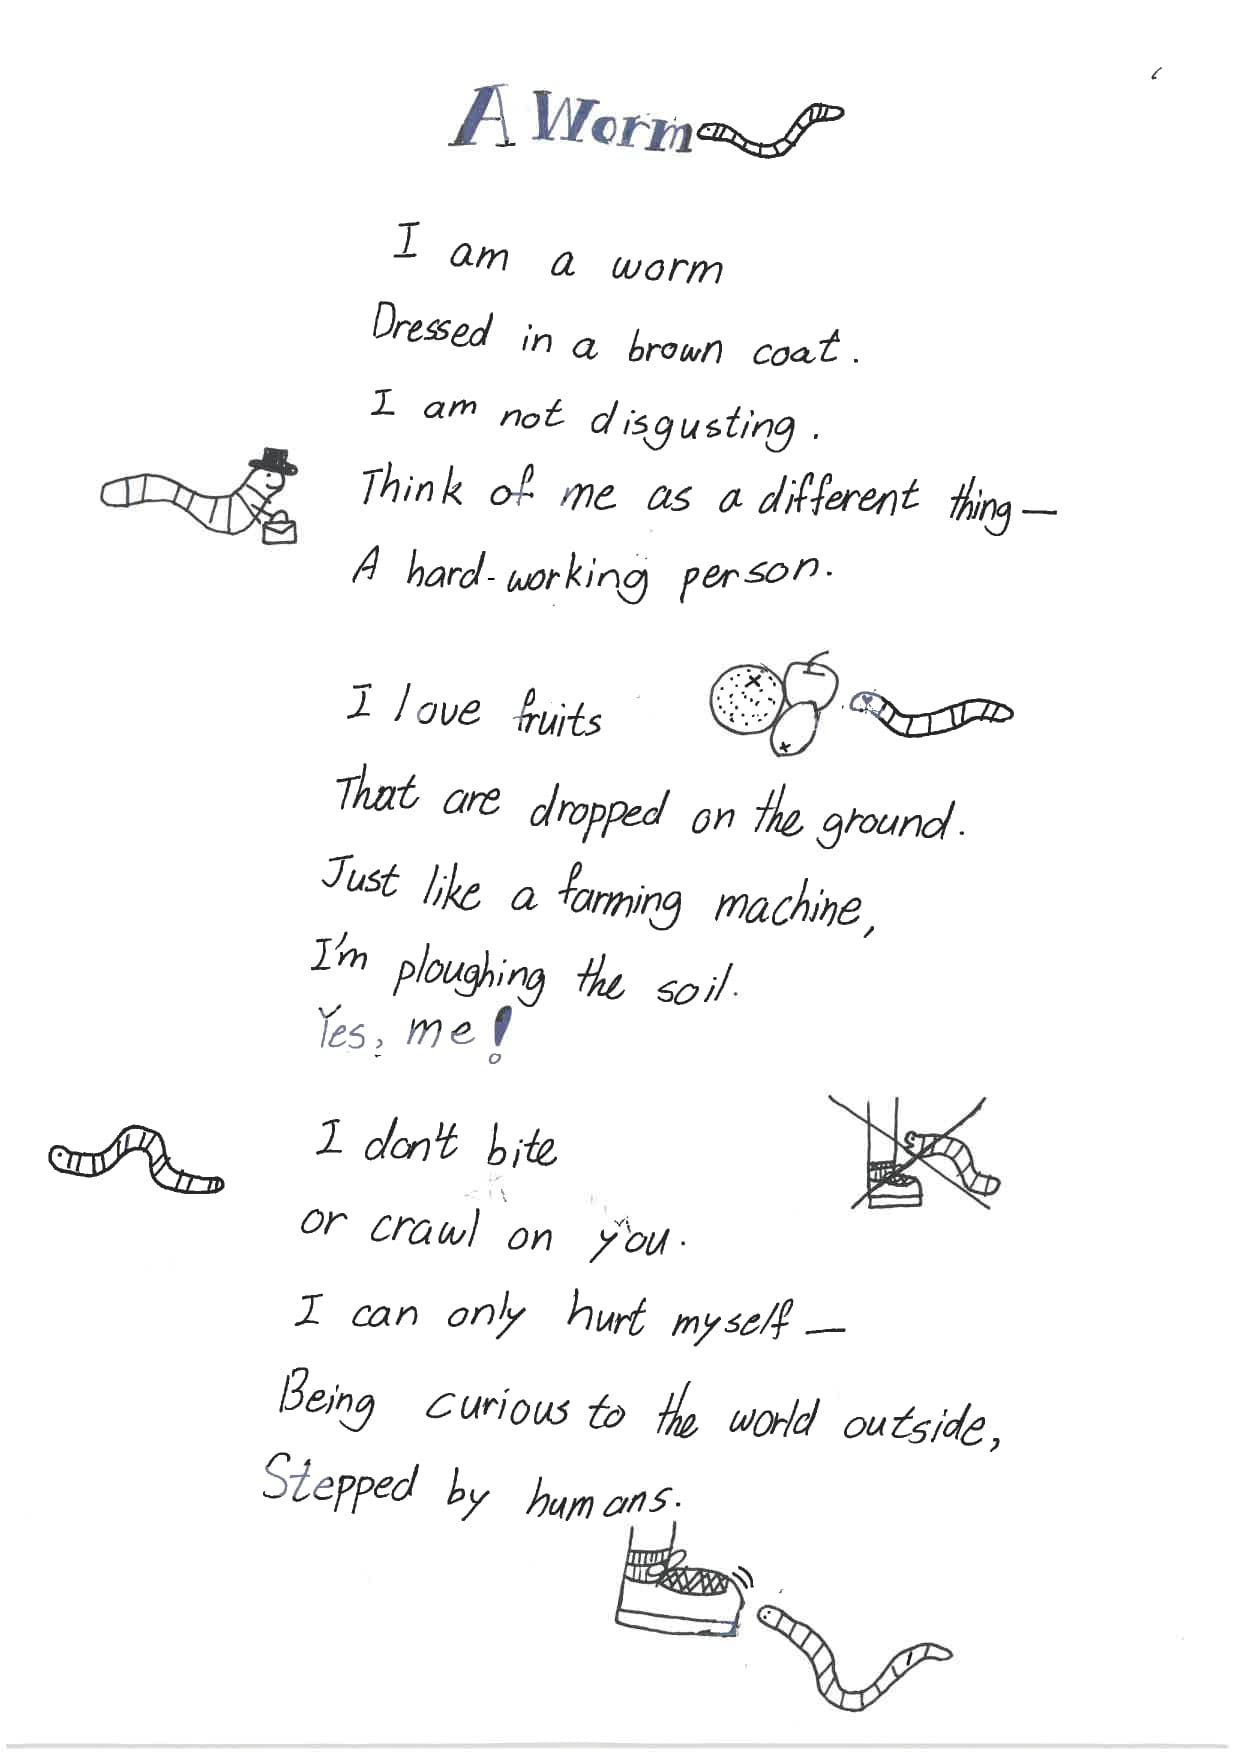 A Worm
I am a worm
Dressed in a brown coat.
I am not disgusting.
Think of me as a different thing—
A hard-working person.
I love fruits
That are dropped on the ground.
Just like a farming machine,
I'm ploughing the soil.
Yes, me!
I don't bite
or crawl on you.
I can only hurt myself—
Being curious to the world outside,
Stepped by humans.